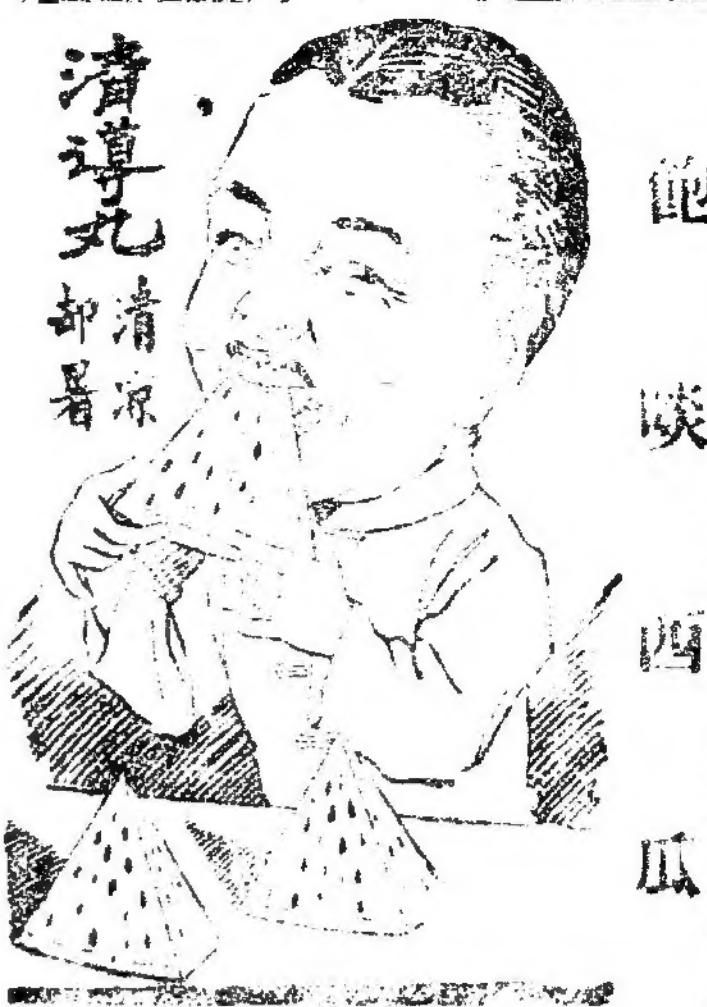 飽啖西瓜
清導丸
清涼
却暑